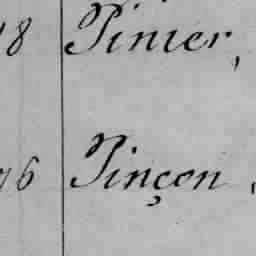 18 Pinier,
76 Pinçon,